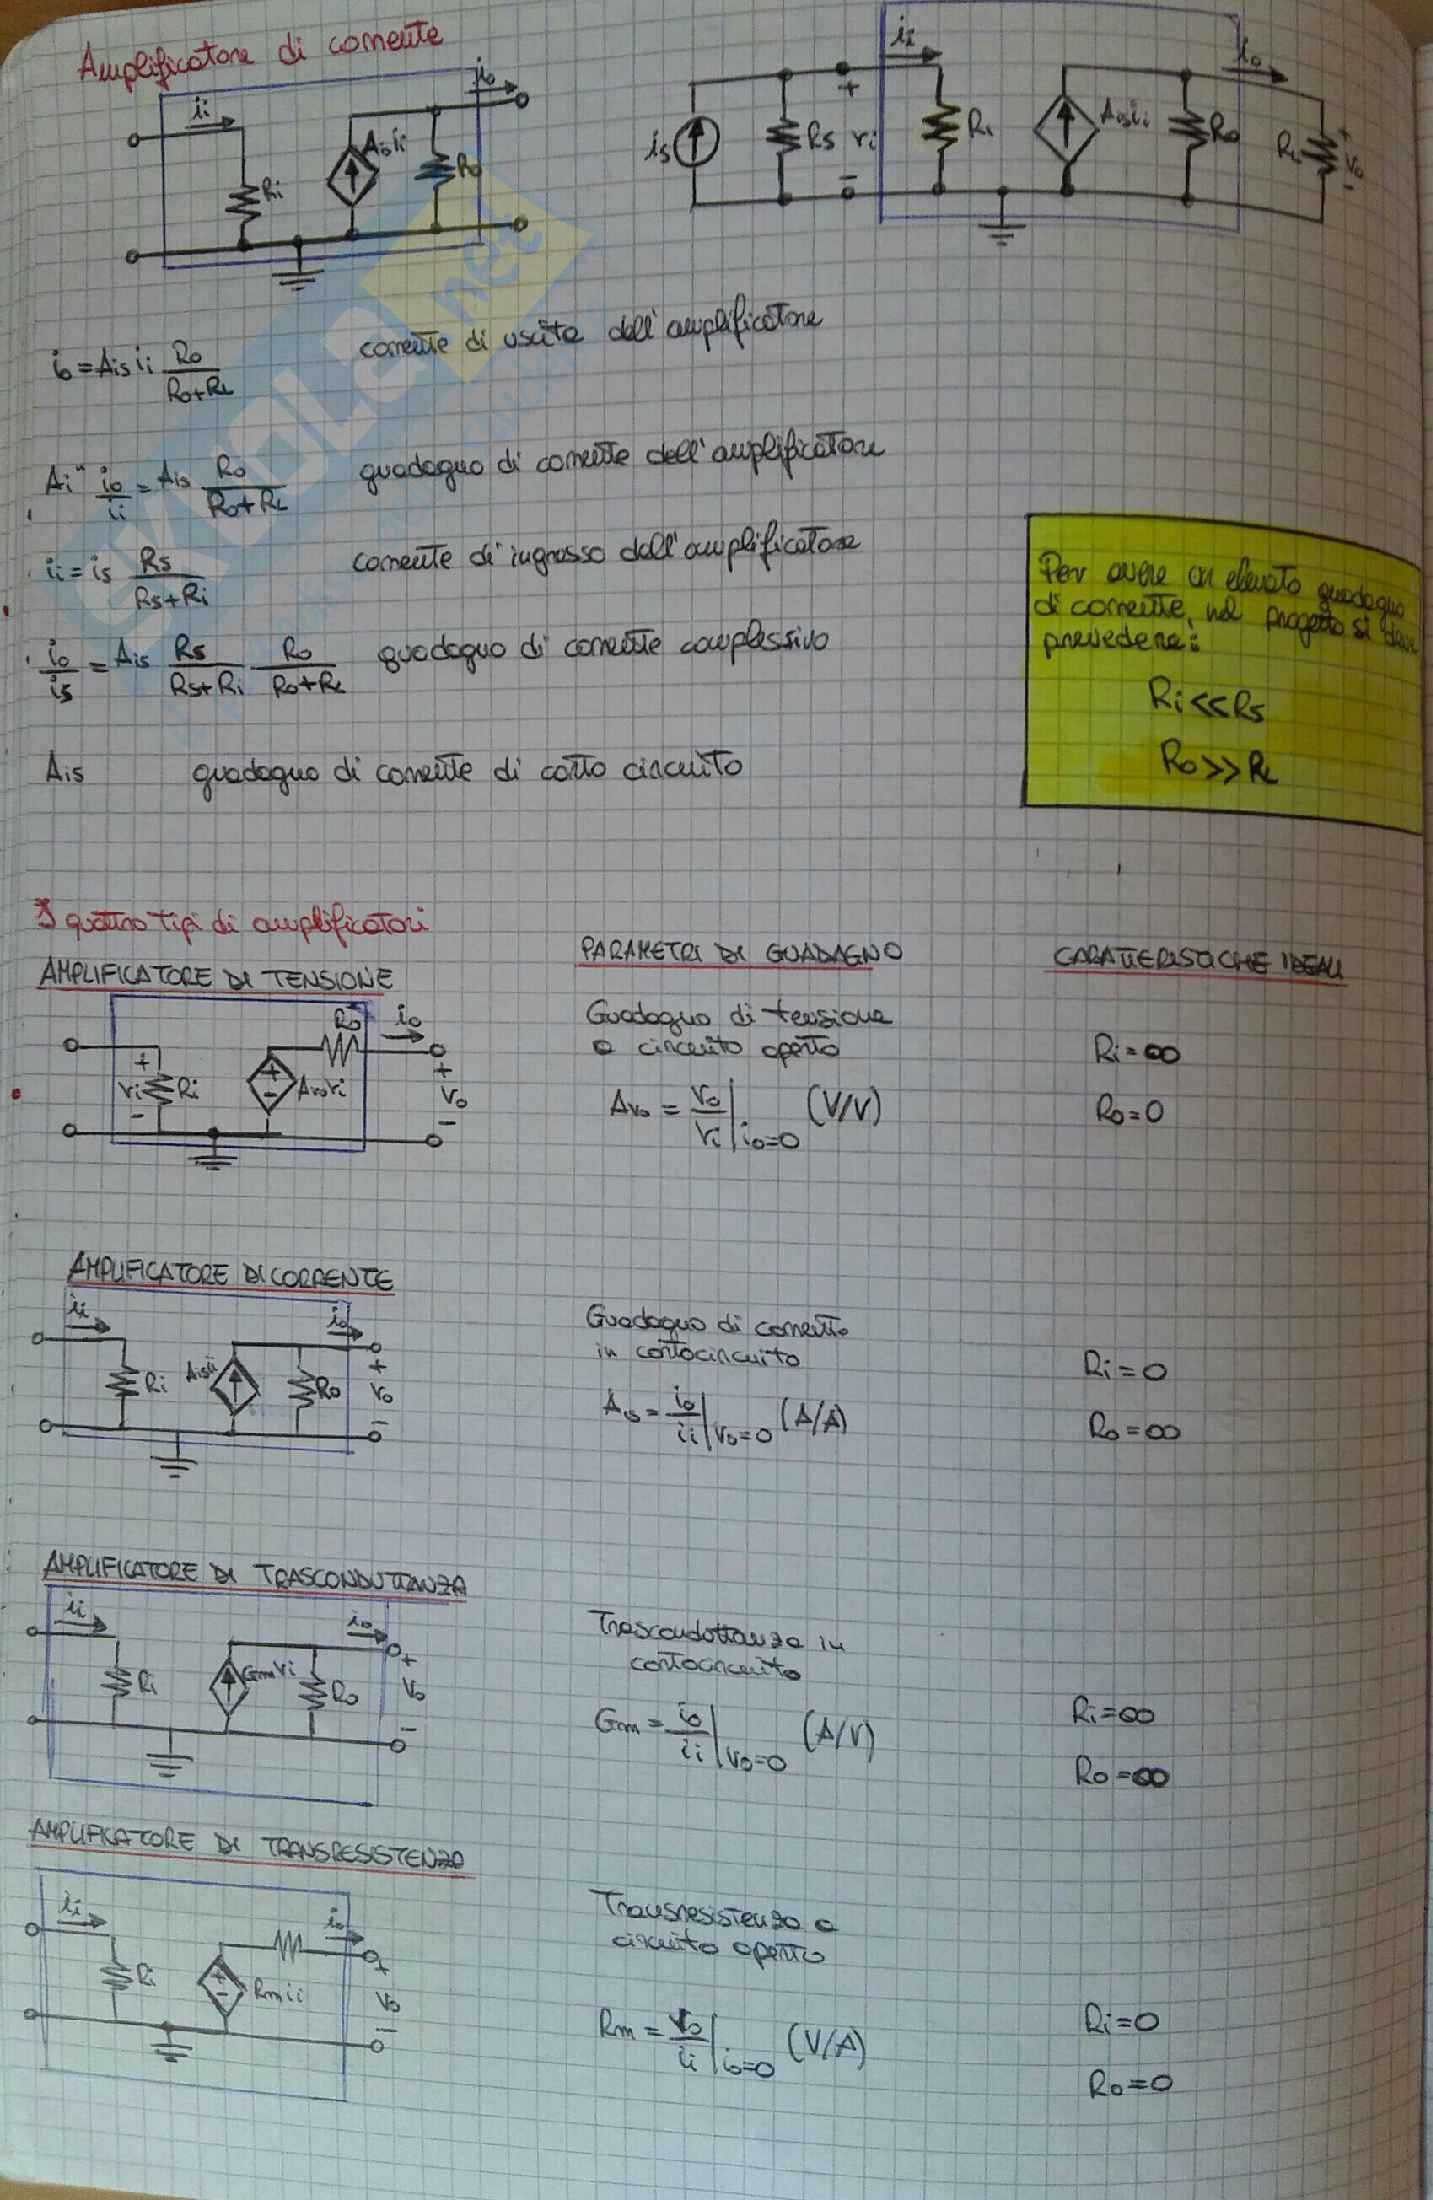 Amplificatore di corrente
ii
Ri
Ais ii
Ro
io
is
Rs
vi
+
-
ii
Ri
Ais ii
Ro
io
RL
+
vo
-
SKUOLA.net
io = Ais ii Ro/(Ro+RL) corrente di uscita dell'amplificatore
Ai = io/ii = Ais Ro/(Ro+RL) guadagno di corrente dell'amplificatore
ii = is Rs/(Rs+Ri) corrente di ingresso dell'amplificatore
io/is = Ais Rs/(Rs+Ri) Ro/(Ro+RL) guadagno di corrente complessivo
Ais guadagno di corrente di corto circuito
Per avere un elevato guadagno
di corrente, nel progetto si deve
prevedere:
Ri<<Rs
Ro>>RL
I quattro tipi di amplificatori
PARAMETRI DI GUADAGNO
CARATTERISTICHE IDEALI
AMPLIFICATORE DI TENSIONE
+ vi - Ri
Avo vi
Ro
io
+ vo -
Guadagno di tensione
a circuito aperto
Avo = vo/vi |io=0 (V/V)
Ri=∞
Ro=0
AMPLIFICATORE DI CORRENTE
ii
Ri
Ais ii
Ro
io
+ vo -
Guadagno di corrente
in cortocircuito
Ais = io/ii |vo=0 (A/A)
Ri=0
Ro=∞
AMPLIFICATORE DI TRASCONDUTTANZA
ii
Ri
Gmvi
Ro
io
+ vo -
Trasconduttanza in
cortocircuito
Gm = io/ii |vo=0 (A/V)
Ri=∞
Ro=∞
AMPLIFICATORE DI TRANSRESISTENZA
ii
Ri
Rm ii
io
+ vo -
Transresistenza a
circuito aperto
Rm = vo/ii |io=0 (V/A)
Ri=0
Ro=0